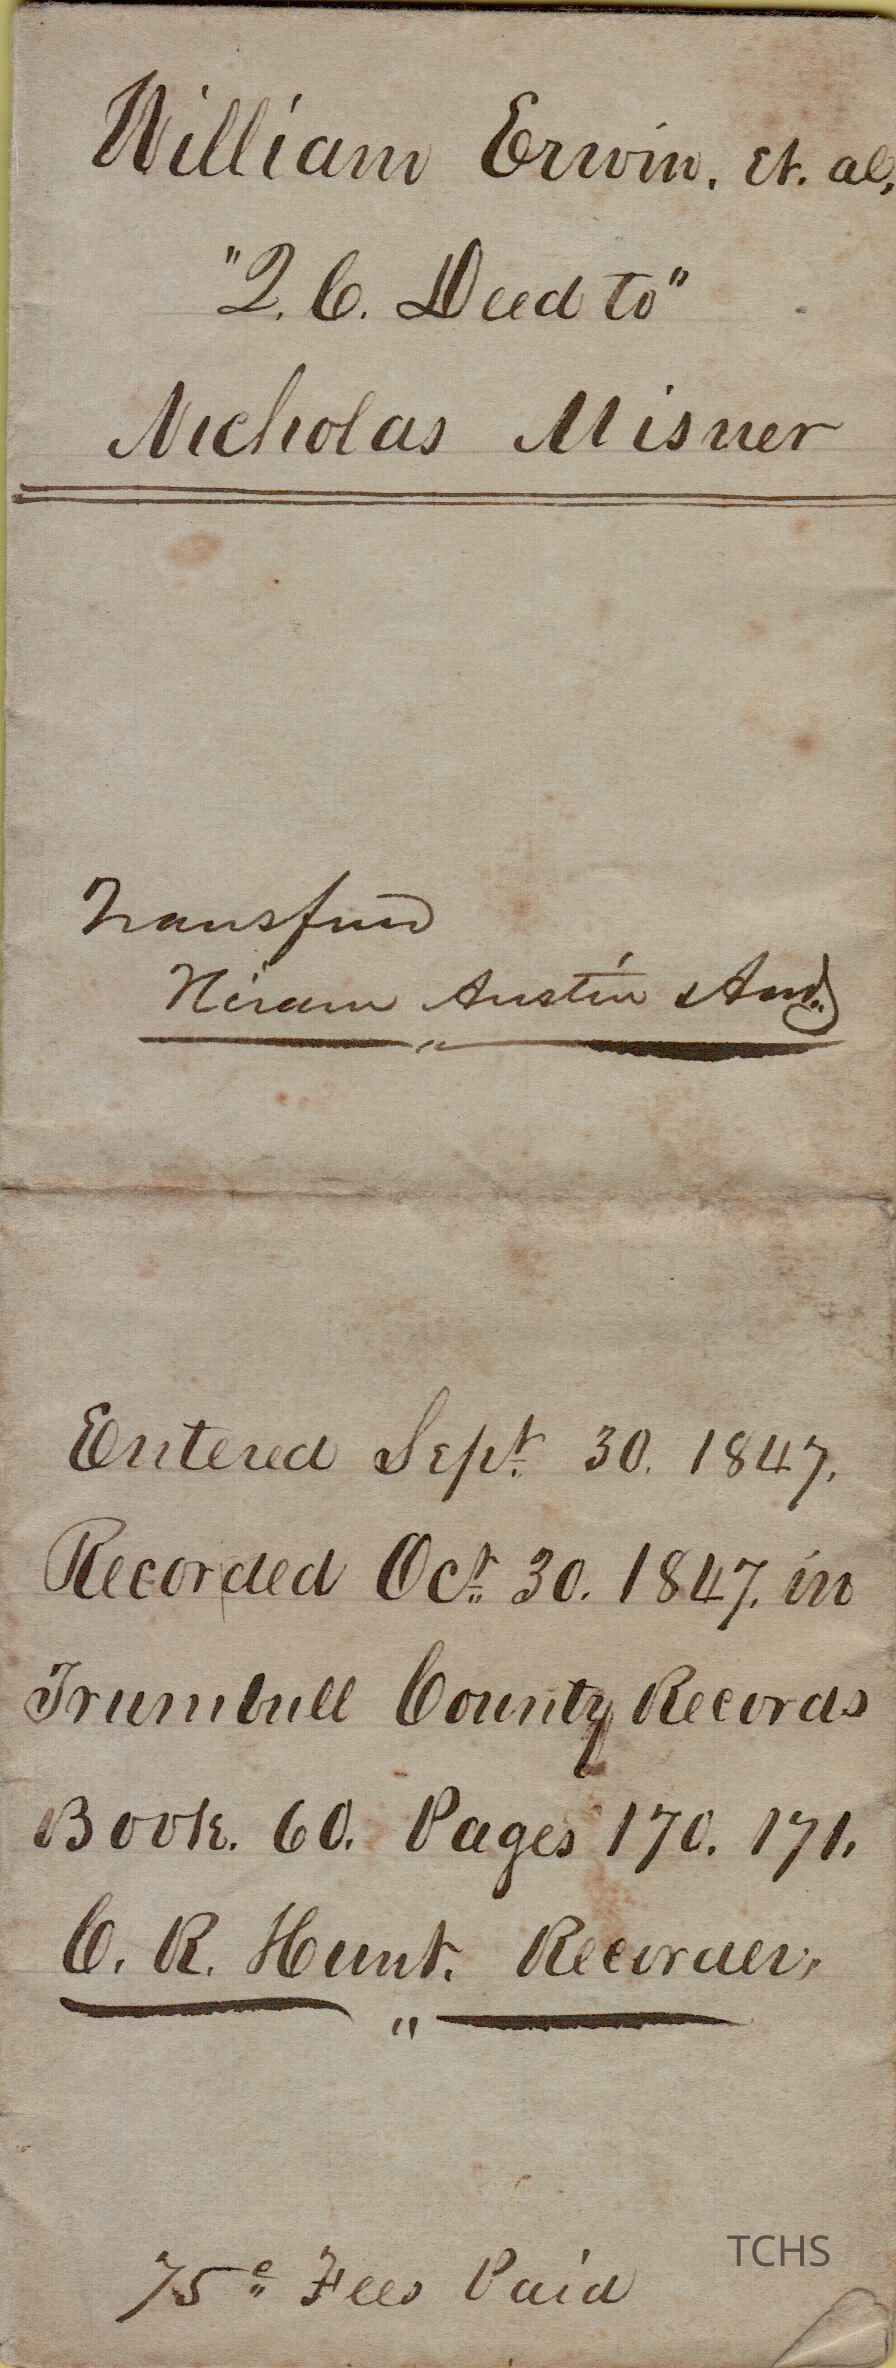 William Erwin, et. al,
"Q. C. Deed to"
Nicholas Misner
Transferred
Hiram Austin Aud.
Entered Sept. 30. 1847.
Recorded Oct. 30. 1847. in
Trumbull County Records
Book. 60. Pages 170. 171.
C. R. Hunt. Recorder,
"
75c Fees Paid
TCHS